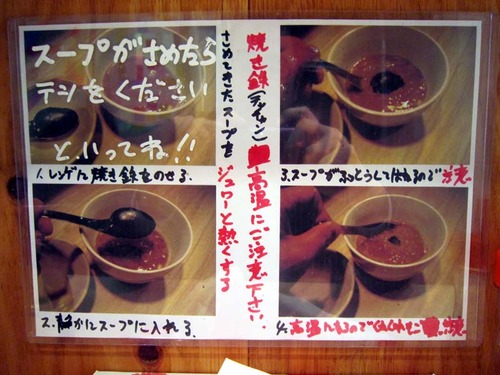 スープがさめたら
テシをください
と、いってね!!
1.レンゲに焼き鉄をのせる。
2.静かにスープに入れる
焼き鉄(テッチャン)高温にご注意下さい。
さめてきたスープをジュワーと熱くする
3.スープがふっとうしてはねるので注意
4.高温になるので